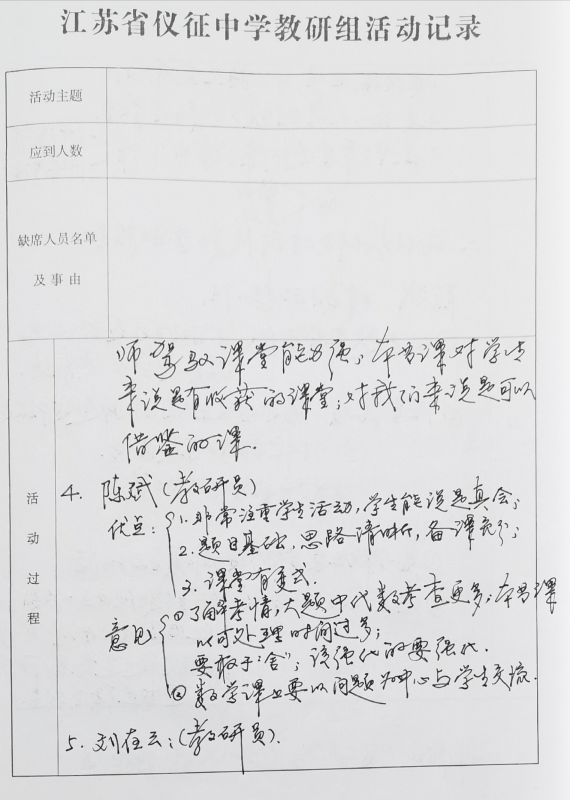 江苏省仪征中学教研组活动记录
活动主题
应到人数
缺席人员名单
及事由
活动过程
师驾驭课堂能力强；本节课对学生
来说是有收获的课堂；对我们来说是可以
借鉴的课.
4. 陈斌(教研员)
优点：1. 非常注重学生活动，学生能说是真会；
2. 题目基础，思路清晰，备课充分；
3. 课堂有变式.
意见 ①了解考情，大题中代数考查更多；本节课
处理时间过多；
要敢于“舍”；该强化的要强化.
② 数学课上要以问题为中心与学生交流.
5. 刘在云：(教研员).